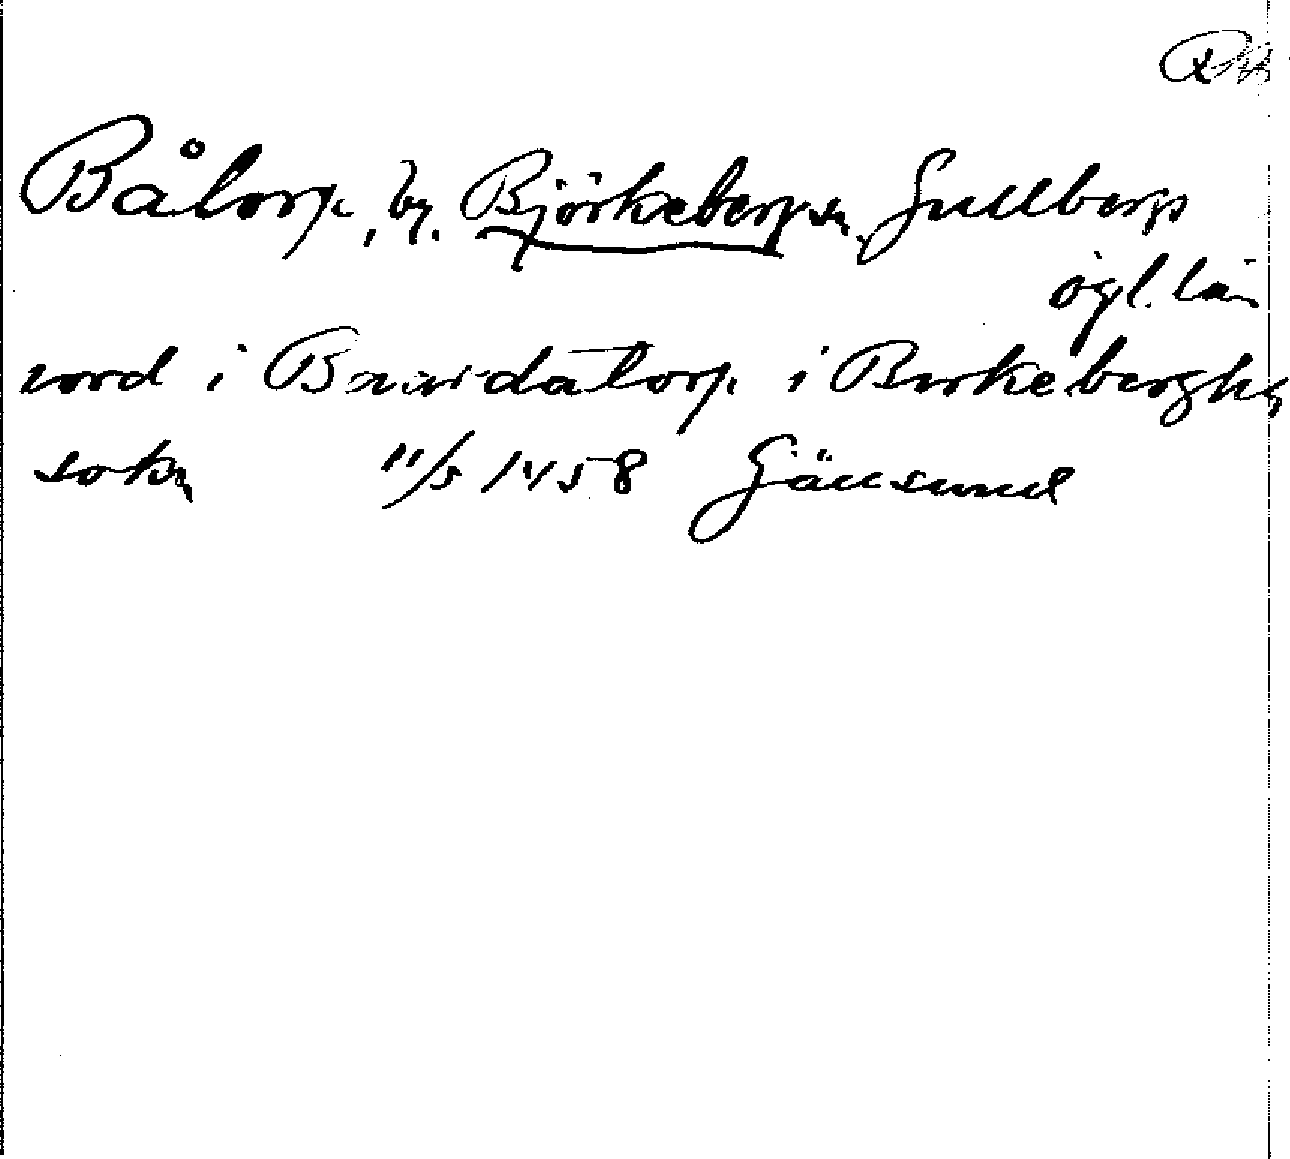 Båtorp, by. Björkeberg sn. Gullberg
ögl. län
nord i torp i Birkebergh
sokn 11/5 1458 Gäusund